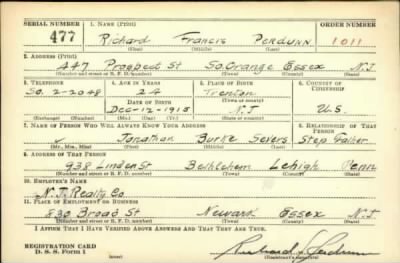 SERIAL NUMBER 1. NAME (Print) ORDER NUMBER
477 Richard Francis Perdunn 1011
(First) (Middle) (Last)
2. ADDRESS (Print)
447 Prospect St So. Orange Essex N.J.
(Number and street or R. F. D. number) (Town) (County) (State)
3. TELEPHONE 4. AGE IN YEARS 5. PLACE OF BIRTH 6. COUNTRY OF CITIZENSHIP
So. 2-2048 24 Trenton
DATE OF BIRTH (Town or county)
Dec-12-1915 N.J. U.S.
(Exchange) (Number) (Mo.) (Day) (Yr.) (State or country)
7. NAME OF PERSON WHO WILL ALWAYS KNOW YOUR ADDRESS 8. RELATIONSHIP OF THAT PERSON
Jonathan Burke Severs Step Father
(Mr., Mrs., Miss) (First) (Middle) (Last)
9. ADDRESS OF THAT PERSON
938 Linden St Bethlehem Lehigh Penn
(Number and street or R. F. D. number) (Town) (County) (State)
10. EMPLOYER'S NAME
N.J. Realty Co
11. PLACE OF EMPLOYMENT OR BUSINESS
830 Broad St Newark Essex N.J.
(Number and street or R. F. D. number) (Town) (County) (State)
I AFFIRM THAT I HAVE VERIFIED ABOVE ANSWERS AND THAT THEY ARE TRUE.
REGISTRATION CARD
D. S. S. Form 1 Richard F. Perdunn